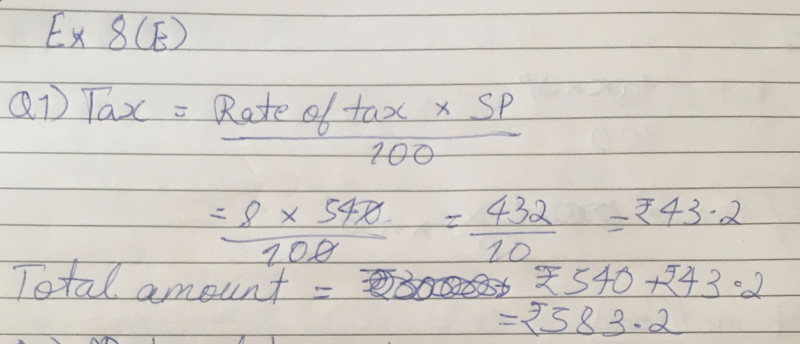 Ex 8(E)
Q1) Tax = Rate of tax × SP
100
= 8 × 540 = 432 = ₹43.2
100 10
Total amount = ₹540 + ₹43.2
= ₹583.2